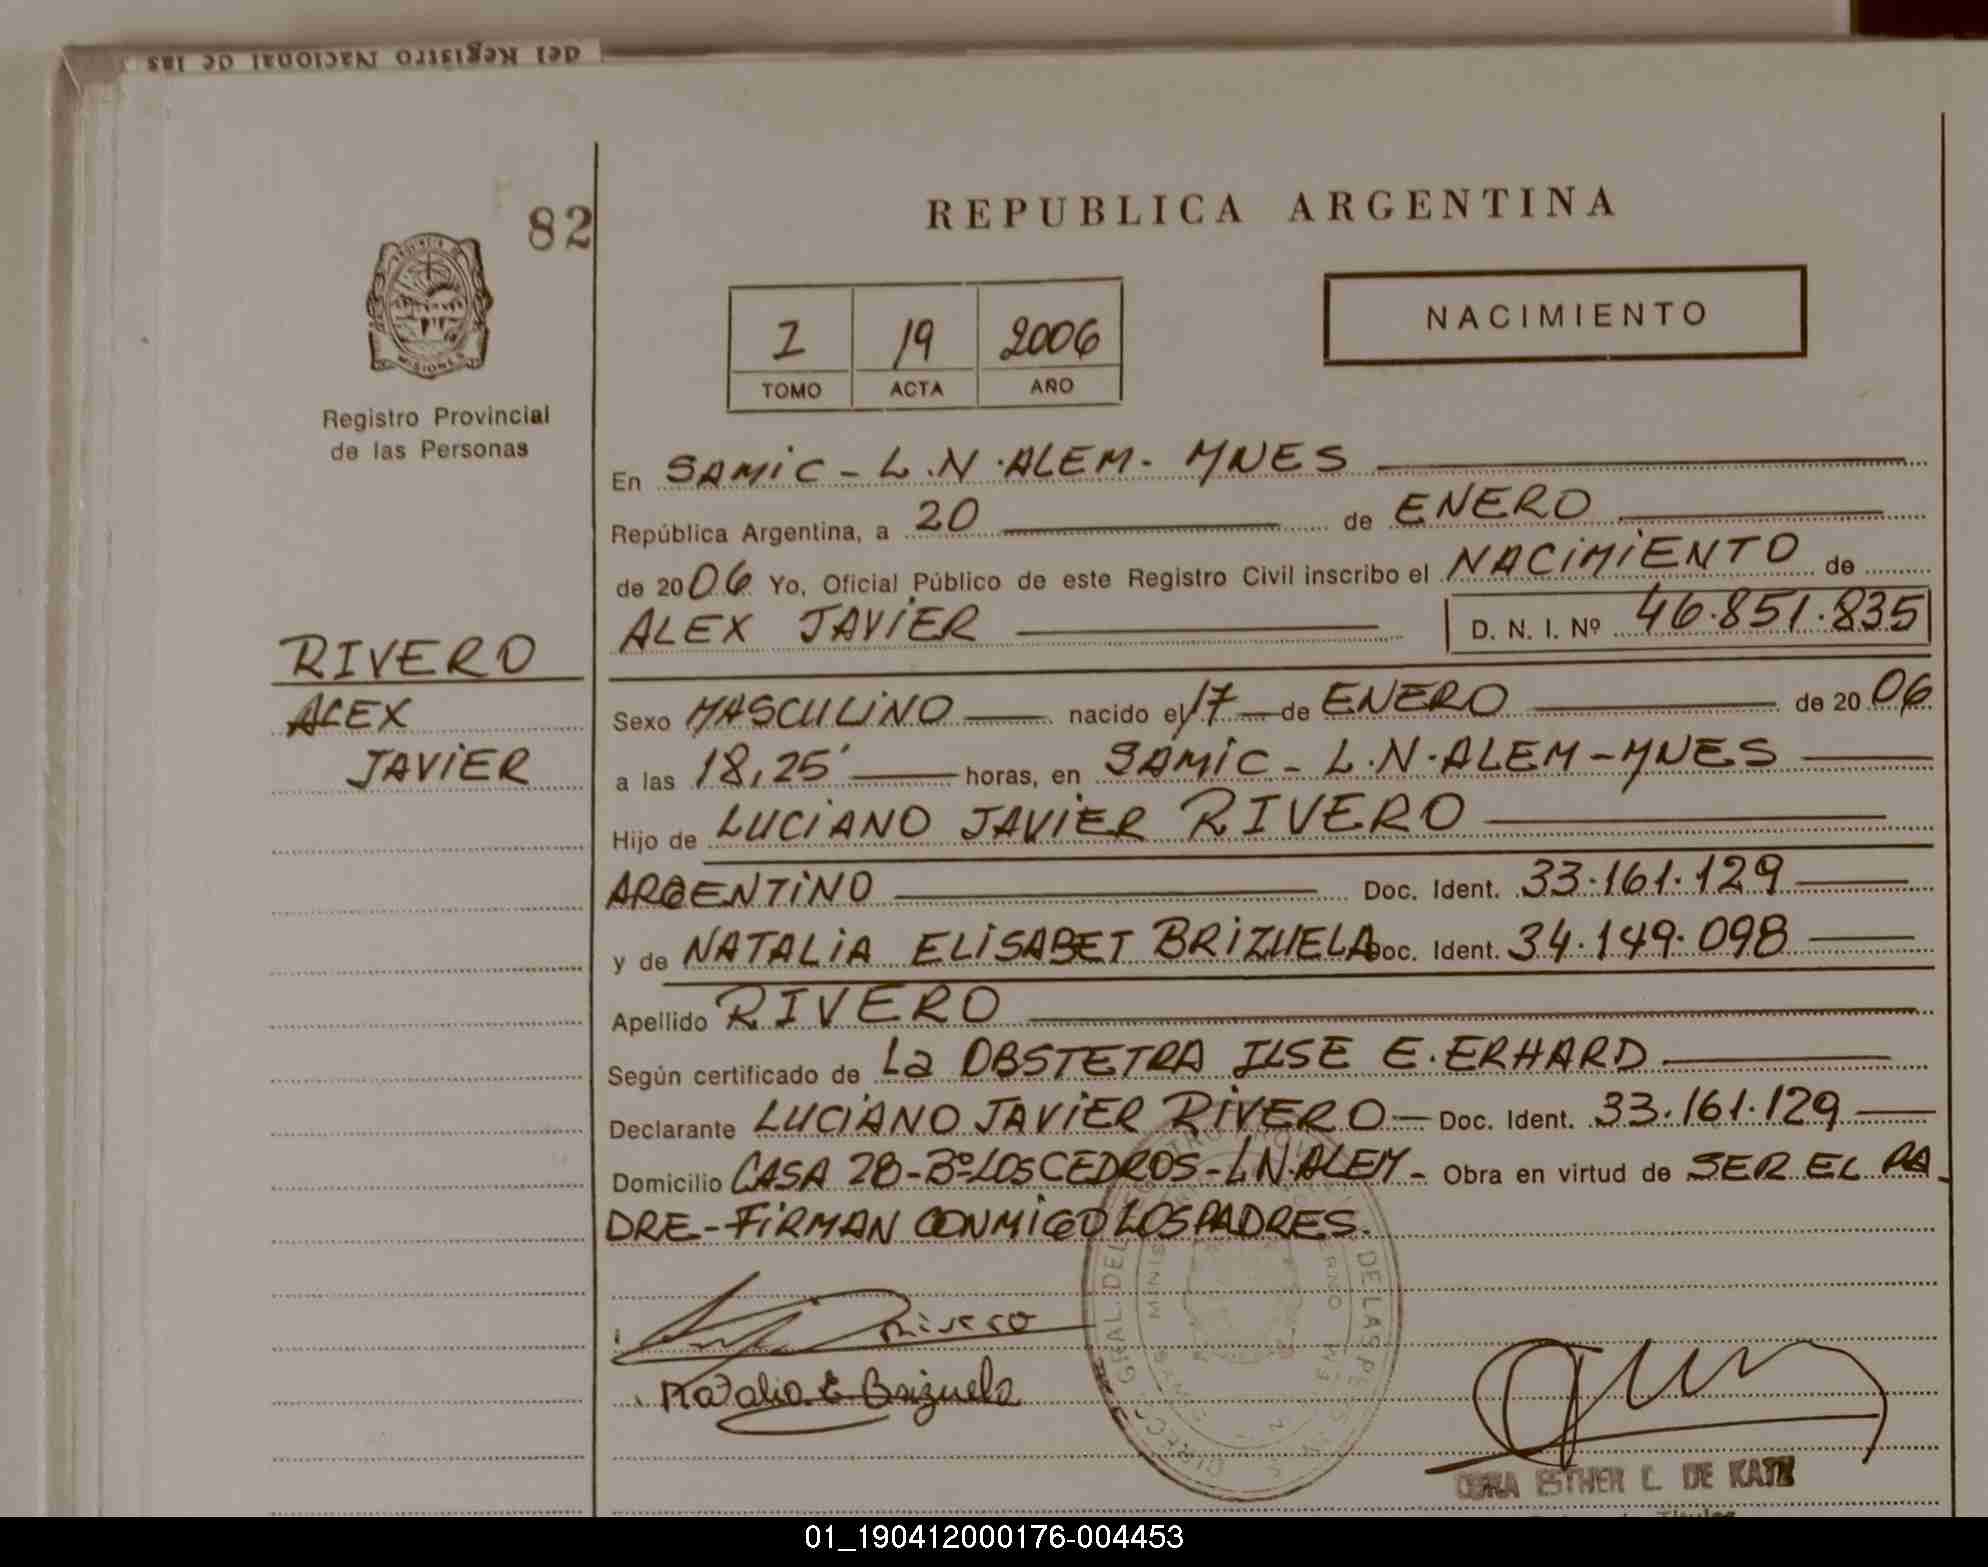 del Registro Nacional de las
82
REPUBLICA ARGENTINA
MISIONES
Registro Provincial
de las Personas
I 19 2006
TOMO ACTA AÑO
NACIMIENTO
En SAMIC - L.N.ALEM - MNES
República Argentina, a 20 de ENERO
de 2006 Yo, Oficial Público de este Registro Civil inscribo el NACIMIENTO de
ALEX JAVIER D. N. I. Nº 46.851.835
RIVERO
ALEX
JAVIER
Sexo MASCULINO nacido el 17 de ENERO de 2006
a las 18,25' horas, en SAMIC - L.N.ALEM - MNES
Hijo de LUCIANO JAVIER RIVERO
ARGENTINO Doc. Ident. 33.161.129
y de NATALIA ELISABET BRIZUELA Doc. Ident. 34.149.098
Apellido RIVERO
Según certificado de La OBSTETRA ILSE E. ERHARD
Declarante LUCIANO JAVIER RIVERO - Doc. Ident. 33.161.129
Domicilio CASA 28 - Bº LOS CEDROS - L.N.ALEM - Obra en virtud de SER EL PA
DRE - FIRMAN CONMIGO LOS PADRES.
Rivero
Natalia E. Brizuela
ESTHER C. DE KATZ
01_190412000176-004453